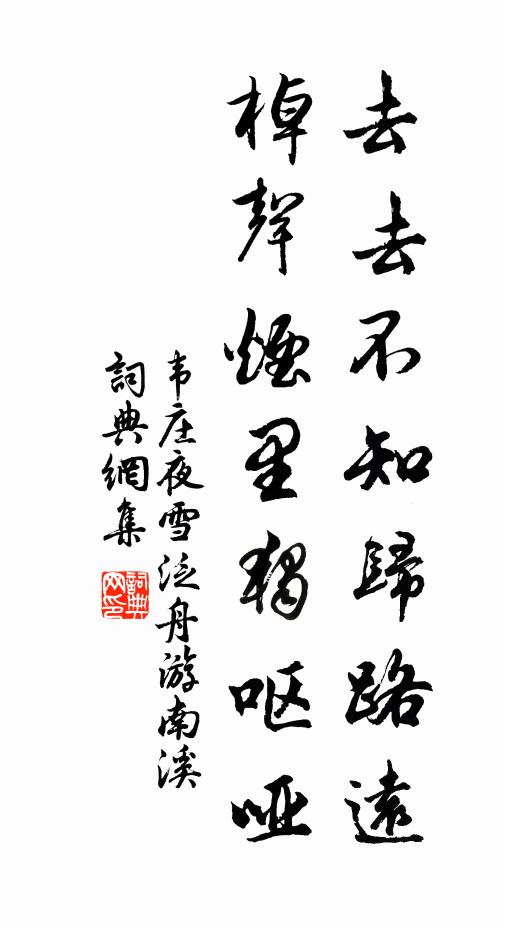 去去不知歸路遠
棹聲煙里獨呕哑
韦庄夜雪泛舟游南溪
詞典網集
詞典网印